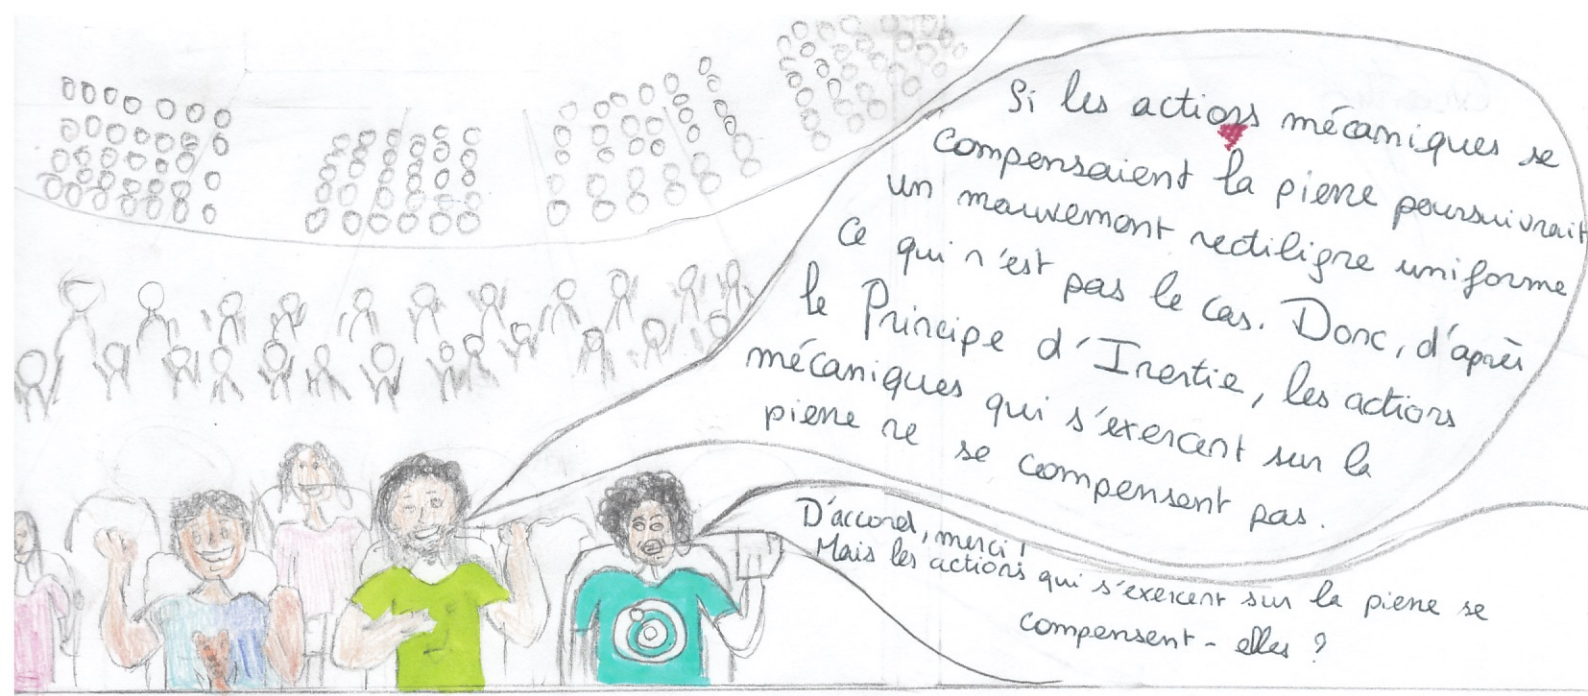 Si les actions mécaniques se
compensaient la pierre poursuivrait
un mouvement rectiligne uniforme
ce qui n'est pas le cas. Donc, d'après
le Principe d'Inertie, les actions
mécaniques qui s'exercent sur la
pierre ne se compensent pas.
D'accord, merci !
Mais les actions qui s'exercent sur la pierre se
compensent-elles ?